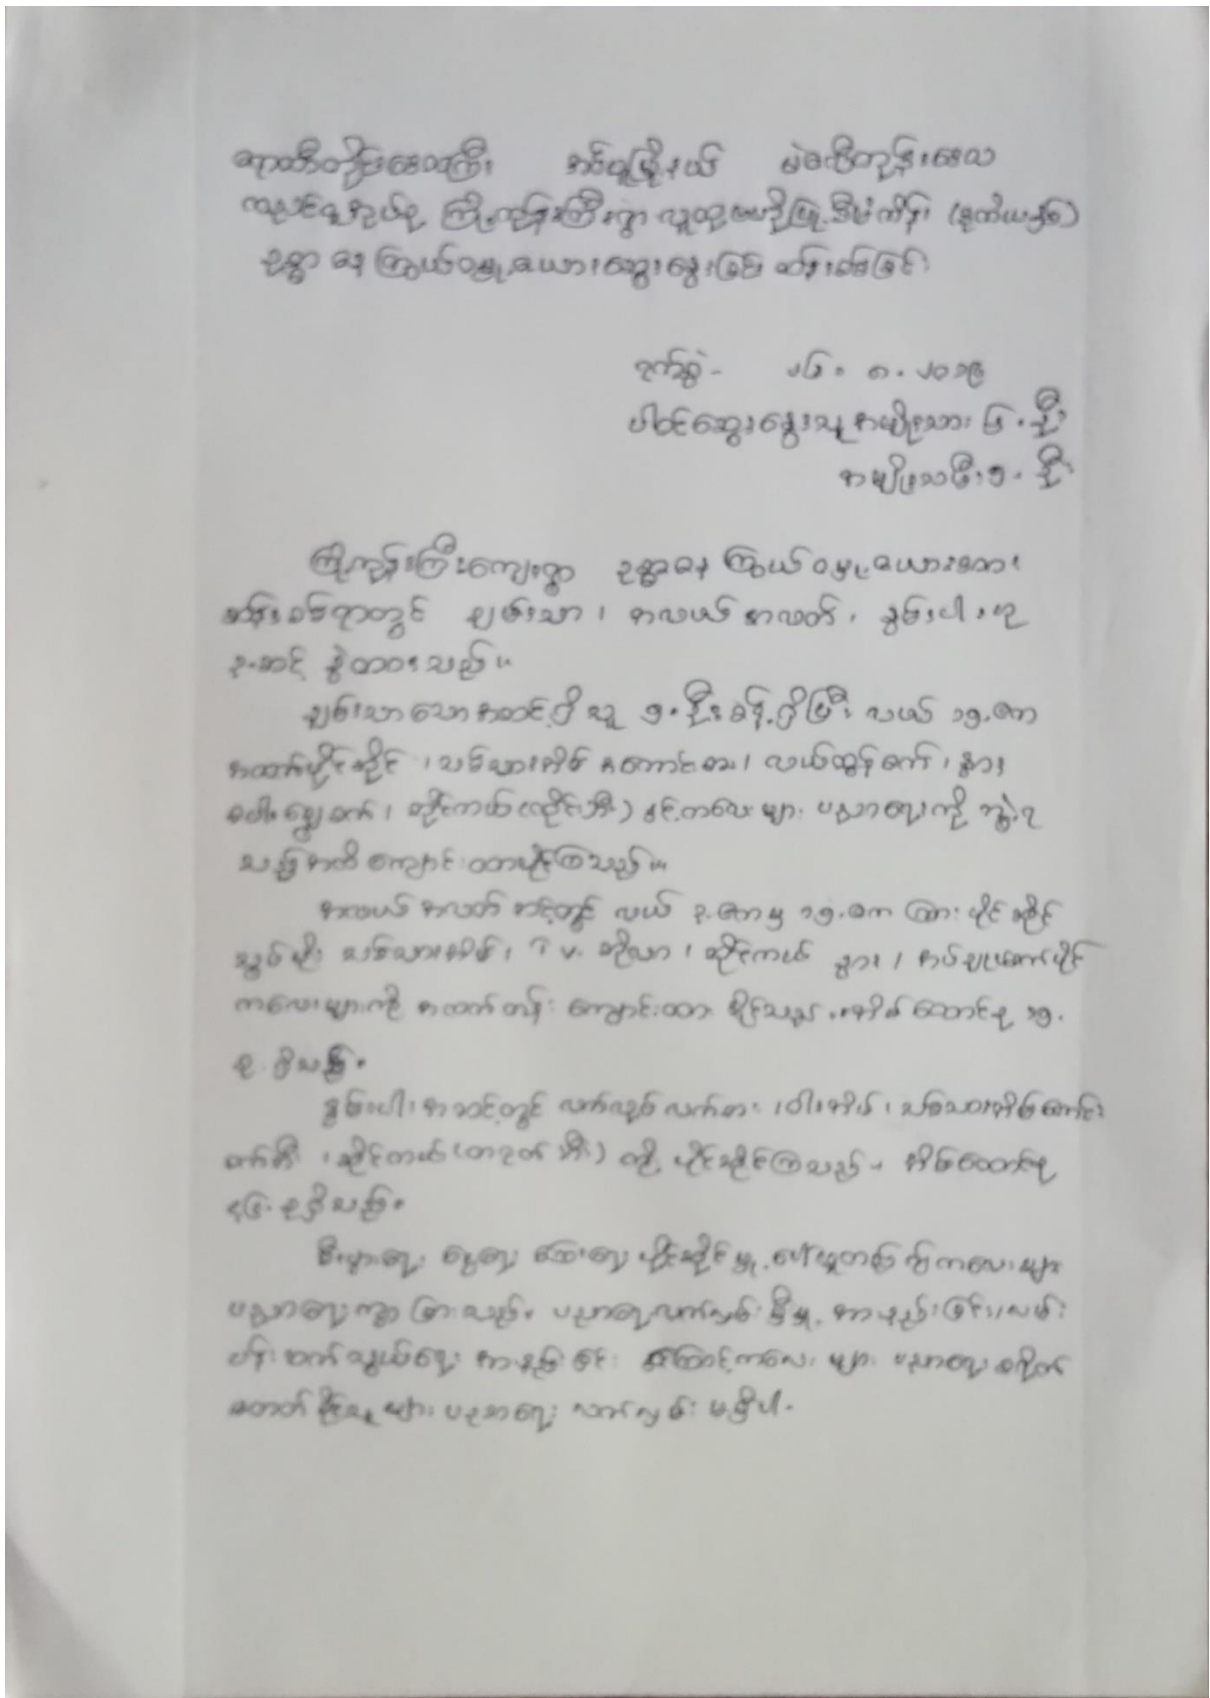 ဧရာဝတီတိုင်းဒေသကြီး အင်္ဂပူမြို့နယ် မဲဇလီကုန်းဒေသ
ကြို့ကုန်းကြီးရွာ လူထုဗဟိုပြု စီမံကိန်း (ဒုတိယနှစ်)
ဥစ္စာဓန ကြွယ်ဝမှုယေားဆွေးနွေးခြင်း ဆန်းစစ်ခြင်း
ရက်စွဲ- ၂၆. ၈. ၂၀၁၉
ပါဝင်ဆွေးနွေးသူ အမျိုးသား ၆. ဦး
အမျိုးသမီး ၅. ဦး
ကြို့ကုန်းကြီးကျေးရွာ ဥစ္စာဓန ကြွယ်ဝမှုယေားအား
ဆန်းစစ်ရာတွင် ချမ်းသာ၊ အလယ်အလတ်၊ နွမ်းပါးဟု
၃.ဆင့် ခွဲထားသည်။
ချမ်းသာသောအဆင့်ရှိသူ ၅.ဦးခန့်ရှိပြီး လယ် ၁၅.ဧက
အထက်ပိုင်ဆိုင်၊ သစ်သားအိမ် အကောင်းစား၊ လယ်ထွန်စက်၊ နွား၊
စပါးခြွေစက်၊ ဆိုင်ကယ် နှင့်ကလေးများ ပညာရေးကို ဘွဲ့ရ
သည်အထိ ကျောင်းထားနိုင်ကြသည်။
အလယ်အလတ် အဆင့်တွင် လယ် ၃.ဧကမှ ၁၅.ဧက ကြား ပိုင်ဆိုင်
သွပ်မိုး သစ်သားအိမ်၊ T V. ဆိုလာ၊ ဆိုင်ကယ် နွား၊ အပ်ချုပ်စက်ပိုင်
ကလေးများကို အထက်တန်း ကျောင်းထား နိုင်သည်။ အိမ်ထောင်စု ၁၅.
စု ရှိသည်။
နွမ်းပါးအဆင့်တွင် လက်လုပ်လက်စား၊ ဝါးအိမ်၊ သစ်သားအိမ်ကောင်း
စက်ဘီး၊ ဆိုင်ကယ် (တရုတ်ဘီး) တို့ ပိုင်ဆိုင်ကြသည်။ အိမ်ထောင်စု
၄၆.စုရှိသည်။
စီးပွားရေး ငွေရေး ကြေးရေး ပိုင်ဆိုင်မှု ပေါ်မူတည်၍ ကလေးများ
ပညာရေးကွာခြားသည်။ ပညာရေးလက်လှမ်းမှီမှု အားနည်းခြင်း၊ လမ်း
ပန်းဆက်သွယ်ရေး အားနည်းခြင်း ကြောင့်ကလေးများ ပညာရေး စရိတ်
မတတ်နိုင်သူများ ပညာရေး လက်လှမ်း မမှီပါ။